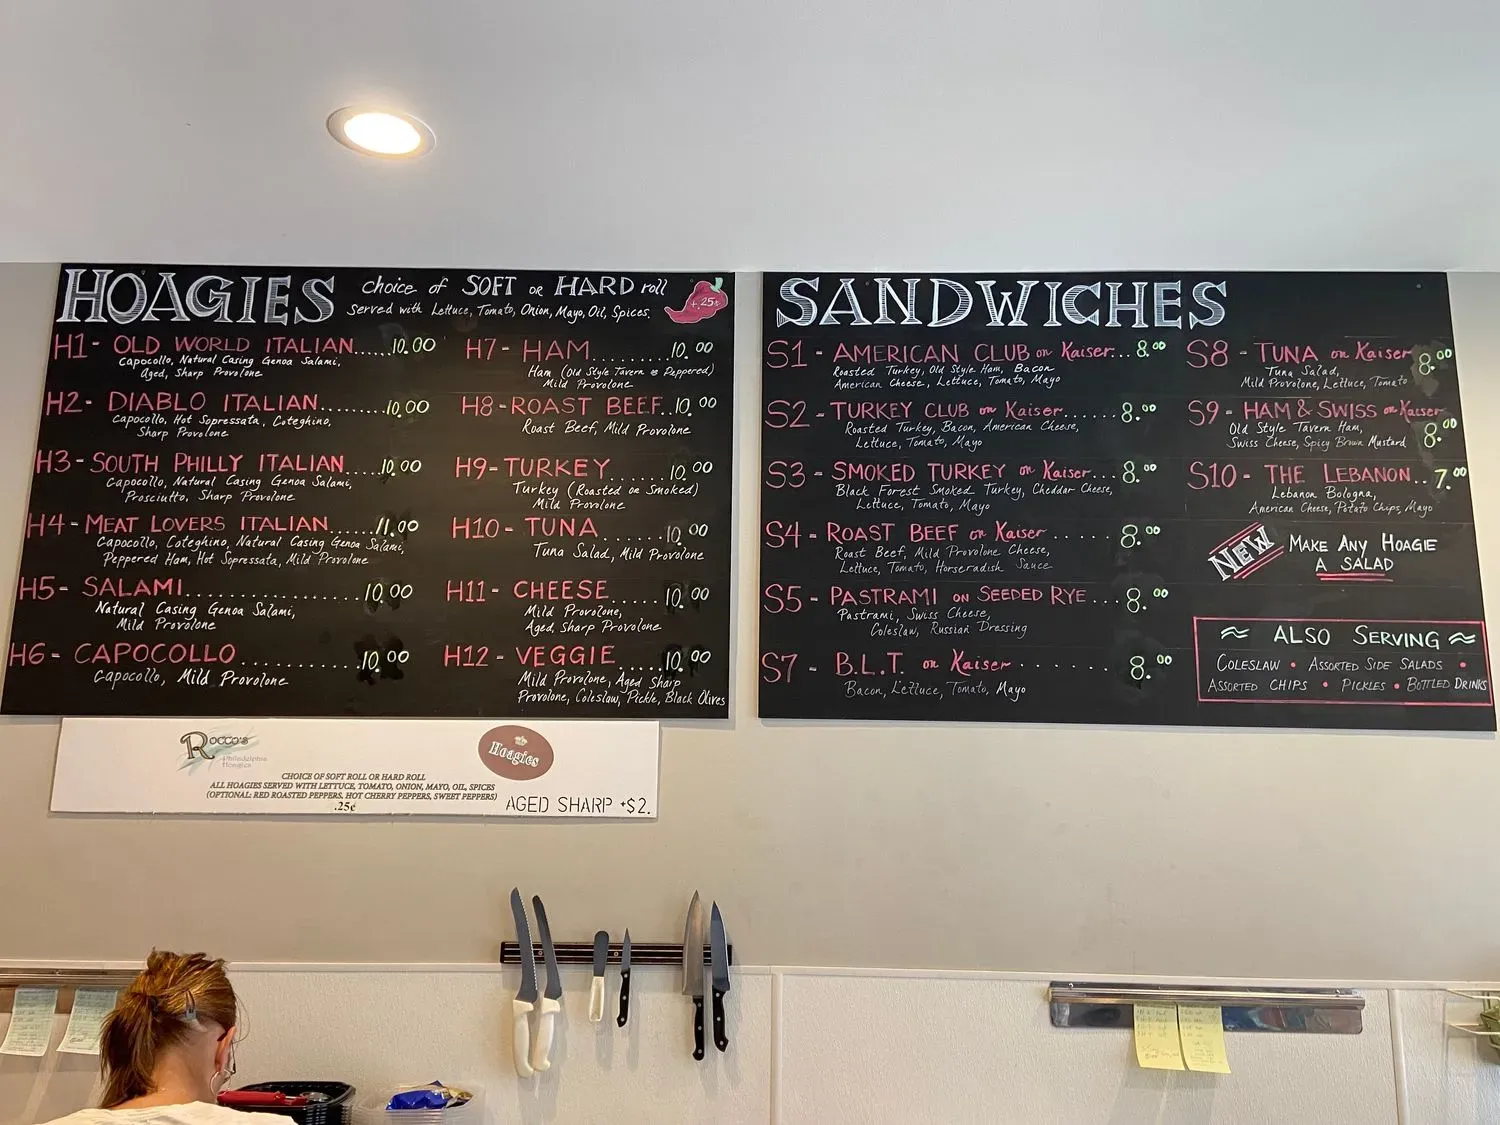 HOAGIES choice of SOFT or HARD roll
Served with Lettuce, Tomato, Onion, Mayo, Oil, Spices.
+.25¢
H1- OLD WORLD ITALIAN......10.00
Capocollo, Natural Casing Genoa Salami,
Aged, Sharp Provolone
H2- DIABLO ITALIAN.........10.00
Capocollo, Hot Sopressata, Coteghino,
Sharp Provolone
H3- SOUTH PHILLY ITALIAN....10.00
Capocollo, Natural Casing Genoa Salami,
Prosciutto, Sharp Provolone
H4- MEAT LOVERS ITALIAN......11.00
Capocollo, Coteghino, Natural Casing Genoa Salami,
Peppered Ham, Hot Sopressata, Mild Provolone
H5- SALAMI..................10.00
Natural Casing Genoa Salami,
Mild Provolone
H6- CAPOCOLLO............10.00
Capocollo, Mild Provolone
H7- HAM.........10.00
Ham (Old Style Tavern or Peppered)
Mild Provolone
H8-ROAST BEEF..10.00
Roast Beef, Mild Provolone
H9-TURKEY.......10.00
Turkey (Roasted or Smoked)
Mild Provolone
H10- TUNA........10.00
Tuna Salad, Mild Provolone
H11- CHEESE......10.00
Mild Provolone,
Aged, Sharp Provolone
H12- VEGGIE.....10.00
Mild Provolone, Aged Sharp
Provolone, Coleslaw, Pickle, Black Olives
SANDWICHES
S1 - AMERICAN CLUB on Kaiser... 8.00
Roasted Turkey, Old Style Ham, Bacon
American Cheese, Lettuce, Tomato, Mayo
S2 - TURKEY CLUB on Kaiser...... 8.00
Roasted Turkey, Bacon, American Cheese,
Lettuce, Tomato, Mayo
S3 - SMOKED TURKEY on Kaiser... 8.00
Black Forest Smoked Turkey, Cheddar Cheese,
Lettuce, Tomato, Mayo
S4 - ROAST BEEF on Kaiser...... 8.00
Roast Beef, Mild Provolone Cheese,
Lettuce, Tomato, Horseradish Sauce
S5 - PASTRAMI ON SEEDED RYE... 8.00
Pastrami, Swiss Cheese,
Coleslaw, Russian Dressing
S7 - B.L.T. on Kaiser ....... 8.00
Bacon, Lettuce, Tomato, Mayo
S8 - TUNA on Kaiser 8.00
Tuna Salad,
Mild Provolone, Lettuce, Tomato
S9 - HAM & SWISS on Kaiser
Old Style Tavern Ham,
Swiss Cheese, Spicy Brown Mustard 8.00
S10 - THE LEBANON.. 7.00
Lebanon Bologna,
American Cheese, Potato Chips, Mayo
NEW MAKE ANY HOAGIE
A SALAD
ALSO SERVING
COLESLAW • ASSORTED SIDE SALADS •
ASSORTED CHIPS • PICKLES • BOTTLED DRINKS
ROCCO'S
Philadelphia
Hoagies
Hoagies
CHOICE OF SOFT ROLL OR HARD ROLL
ALL HOAGIES SERVED WITH LETTUCE, TOMATO, ONION, MAYO, OIL, SPICES
(OPTIONAL: RED ROASTED PEPPERS, HOT CHERRY PEPPERS, SWEET PEPPERS)
.25¢
AGED SHARP +$2.